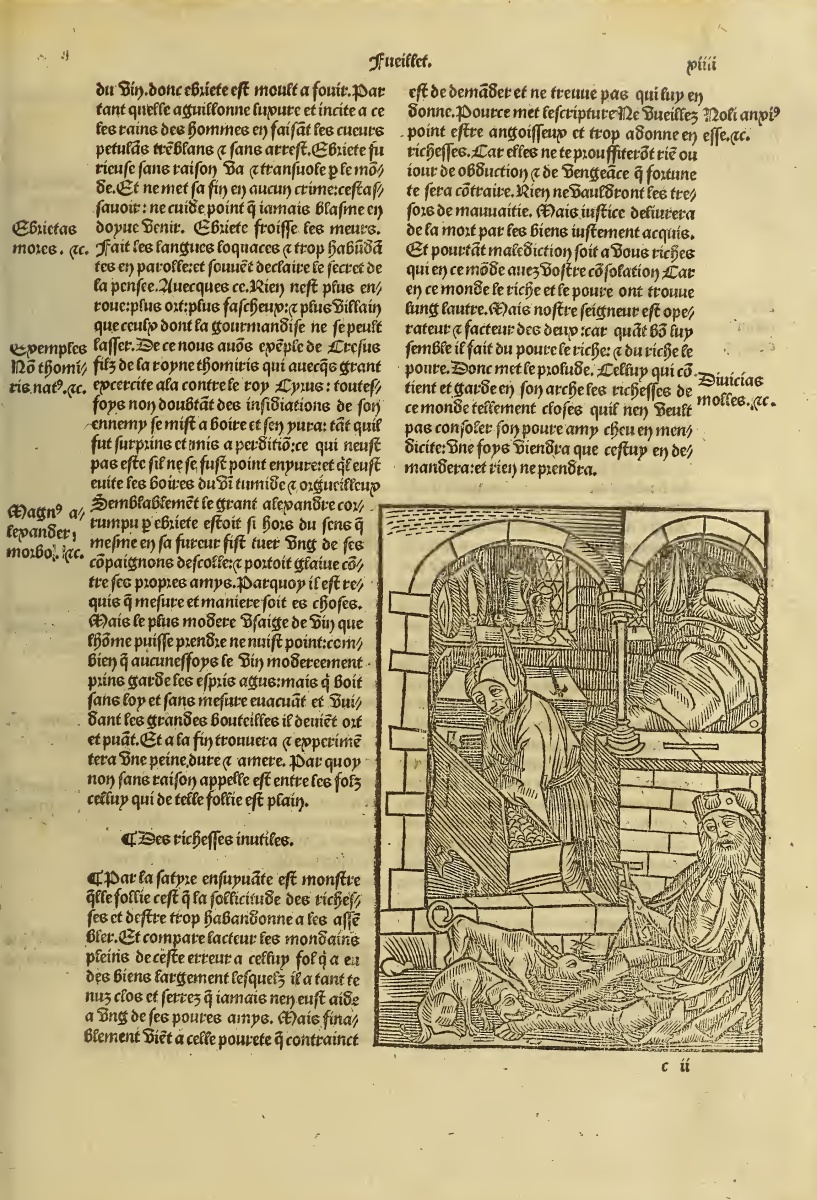 Fueillet.
xiiii
du vin. donc ebriete est moult a fouir. Par
tant quelle aguillonne luxure et incite a ce
les rains des hommes en faisāt les cueurs
petulās trēblans ⁊ sans arrest. Ebriete fu
rieuse sans raison va ⁊ transuole p le mō⸗
de. Et ne met sa fin en aucun crime: cestas⸗
sauoir: ne cuide point q̄ iamais blasme en
doyue venir. Ebriete froisse les meurs.
Fait les langues loquaces ⁊ trop habūdā
tes en parolle: et souuēt declaire le secret de
la pensee. Auecques ce. Rien nest plus en⸗
roue: plus ort: plus fascheux: ⁊ plus villain
que celuy dont la gourmandise ne se peult
lasser. De ce nous auōs exēple de Cresus
filz de la royne thomiris qui auecq̄s grant
excercite ala contre le roy Cyrus: toutes⸗
foys non doubtāt des insidiations de son
ennemy se mist a boire et sen yura: tāt quil
fut surprins et mis a perditiō: ce qui neust
pas este sil ne se fust point enyure: et q̄l eust
euite les boires du vī tumide ⁊ orgueilleux
Semblablemēt le grant alexandre cor⸗
rumpu p ebriete estoit si hors du sens q̄
mesme en sa fureur fist tuer vng de ses
cōpaignons descolle: ⁊ portoit glaiue cō⸗
tre ses propres amys. Parquoy il est re⸗
quis q̄ mesure et maniere soit es choses.
Mais le plus modere vsaige de vin que
lhōme puisse prendre ne nuist point: com⸗
bien q̄ aucunesfoys le vin modereement
prins garde les espris agus: mais q̄ boit
sans loy et sans mesure euacuāt et vui⸗
dant les grandes bouteilles il deuiēt ort
et puāt. Et a la fin trouuera ⁊ experimē
tera vne peine, dure ⁊ amere. Par quoy
non sans raison appelle est entre les folz
celluy qui de telle follie est plain.
¶ Des richesses inutiles.
¶ Par la satyre ensuyuāte est monstre
q̄lle follie cest q̄ la sollicitude des riches⸗
ses et destre trop habandonne a les assē
bler. Et compare lacteur les mondains
pleins de ceste erreur a celluy fol q̄ a eu
des biens largement lesquelz il a tant te
nuz clos et serrez q̄ iamais nen eust aide
a vng de ses poures amys. Mais fina⸗
blement viēt a celle pourete q̄ contrainct
Ebrietas
mores. ⁊c.
Exemples
Nō thomi⸗
ris natꝰ. ⁊c.
Magnꝰ a⸗
lexander,
morbo. ⁊c.
est de demāder et ne treuue pas qui luy en
donne. Pource met lescripture Ne vueillez
point estre angoisseux et trop adonne en
richesses. Car elles ne te prouffiterōt riē ou
iour de obduction ⁊ de vengeāce q̄ fortune
te sera cōtraire. Rien ne vauldront les tre⸗
sors de mauuaitie. Mais iustice deliurera
de la mort par les biens iustement acquis.
Et pourtāt malediction soit a vous riches
qui en ce mōde auez vostre cōsolation Car
en ce monde le riche et le poure ont trouue
lung lautre. Mais nostre seigneur est ope⸗
rateur ⁊ facteur des deux: car quāt bō luy
semble il fait du poure le riche: ⁊ du riche le
poure. Donc met le prosude. Celluy qui cō
tient et garde en son arche les richesses de
ce monde tellement closes quil nen veult
pas consoler son poure amy cheu en men⸗
dicite: vne foys viendra que cestuy en de⸗
mandera: et rien ne prendra.
Noli anxiꝰ
esse. ⁊c.
Diuicias
molles. ⁊c.
c ii